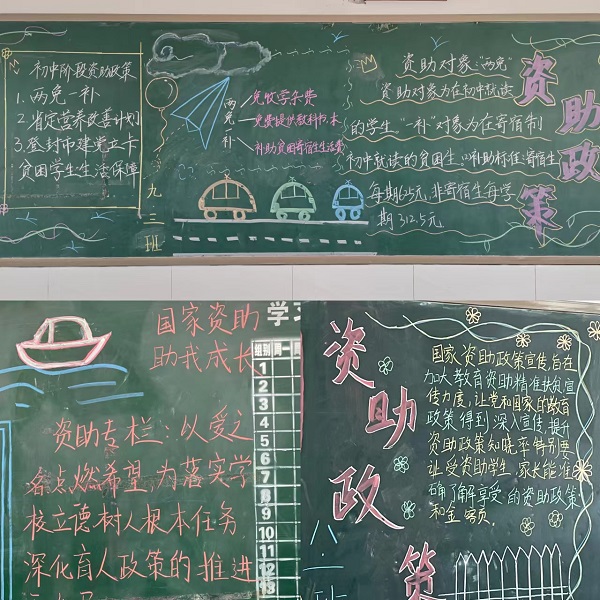 初中阶段资助政策
1.两免一补
2.省定营养改善计划
3.登封市建党立卡
贫困学生生活保障
两免一补
免收学杂费
免费提供教科书.本
补助贫困寄宿生生活费
九二班
资助对象:"两免"
资助对象为在初中就读
的学生."一补"对象为在寄宿制
初中就读的贫困生."补助标准:寄宿生
每期625元,非寄宿生每学
期312.5元.
资助政策
国家资助
助我成长
学习
组别 周一 周
1
2
3
4
5
6
7
8
9
10
11
12
13
资助专栏:以爱之
名点燃希望,为落实学
校立德树人根本任务
深化育人政策的推进
资助政策
国家资助政策宣传,旨在
加大教育资助精准扶贫宣
传力度,让党和国家的教育
政策得到深入宣传,提升
资助政策知晓率特别要
让受资助学生,家长能准
确了解享受的资助政策
和金额.
八.一班